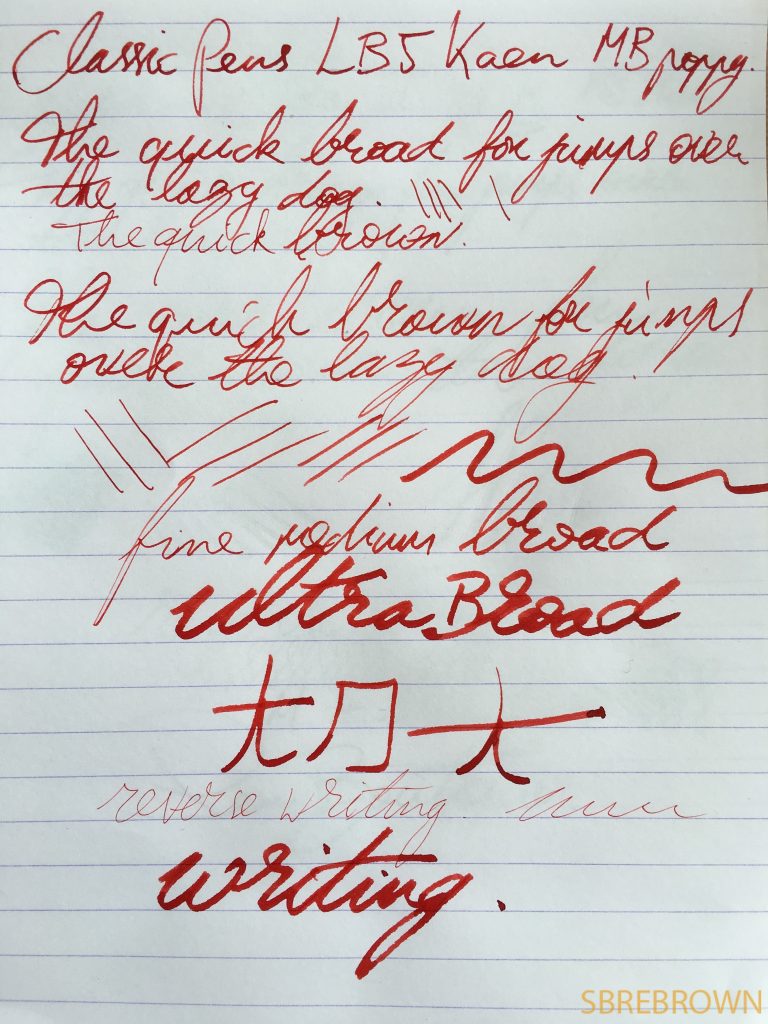 Classic Pens LB5 Kaen MB poppy.
The quick broad fox jumps over
the lazy dog.
The quick brown.
The quick brown fox jumps
over the lazy dog.
fine medium broad
ultra Broad
大
reverse writing
writing.
SBREBROWN